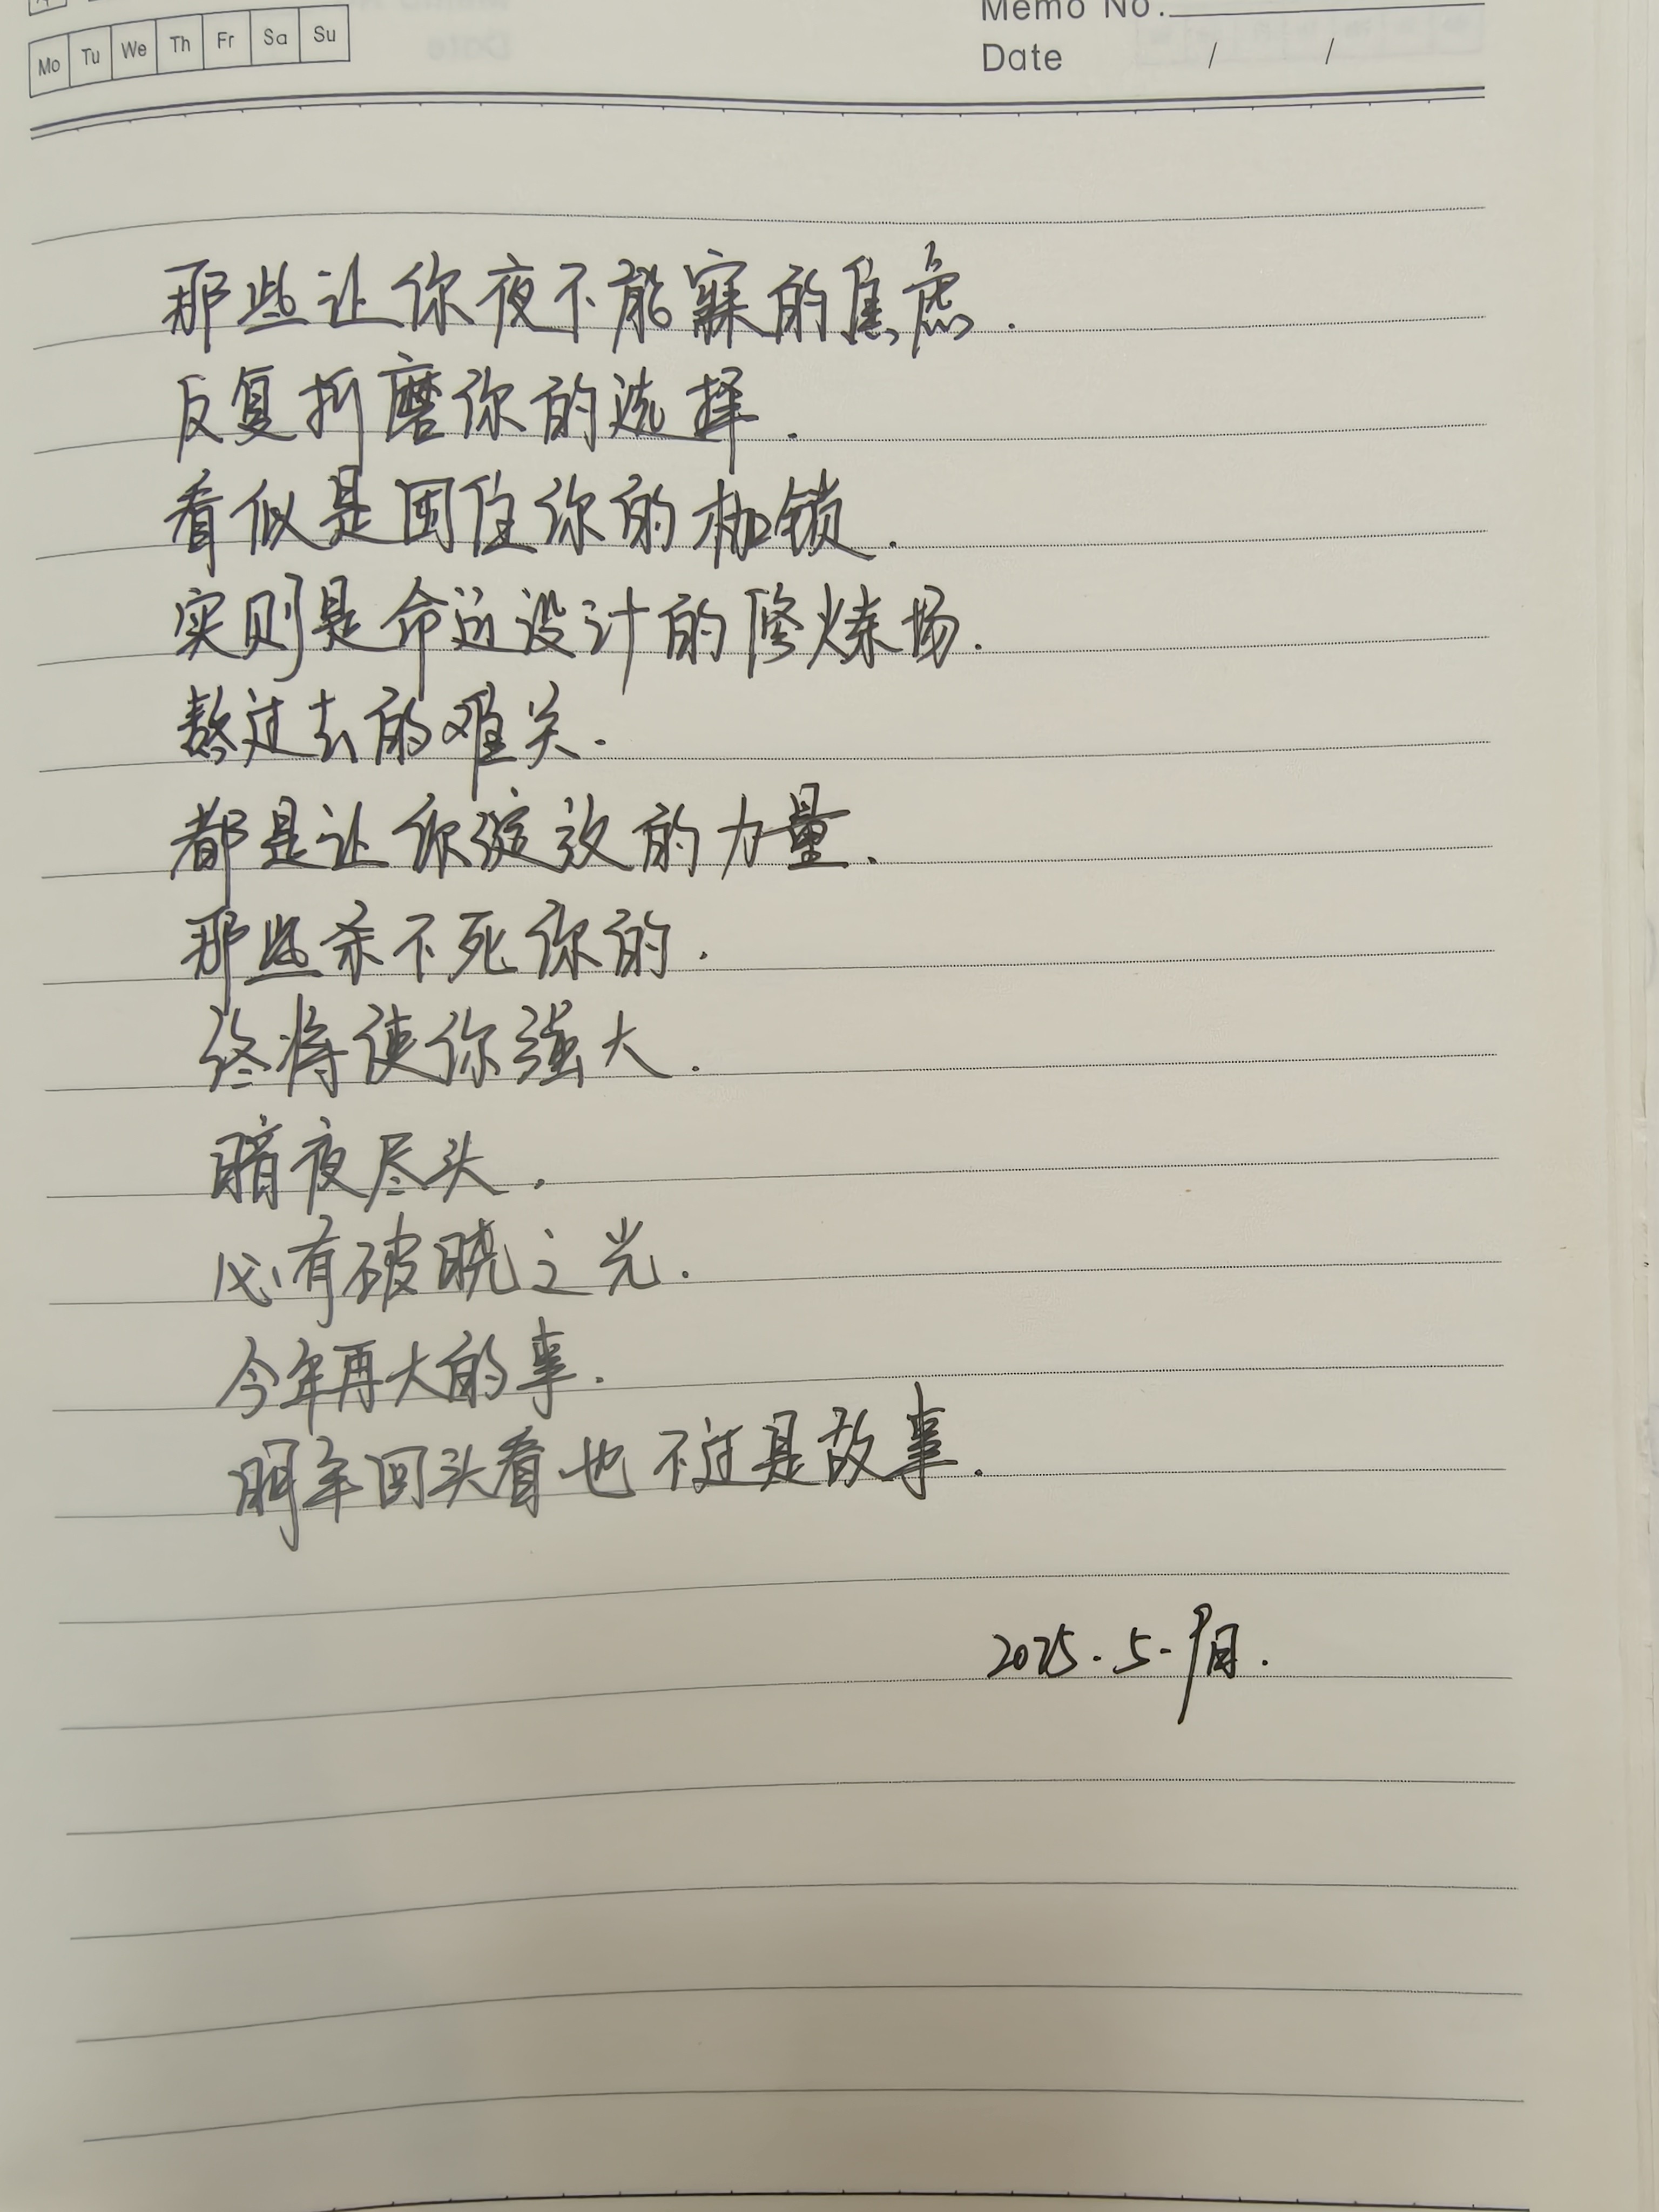 Mo Tu We Th Fr Sa Su
Memo No.
Date / /
那些让你夜不能寐的焦虑.
反复折磨你的选择.
看似是困住你的枷锁.
实则是命运设计的修炼场.
熬过去的难关.
都是让你绽放的力量.
那些杀不死你的.
终将使你强大.
暗夜尽头.
必有破晓之光.
今年再大的事.
明年回头看也不过是故事.
2025.5.9日.